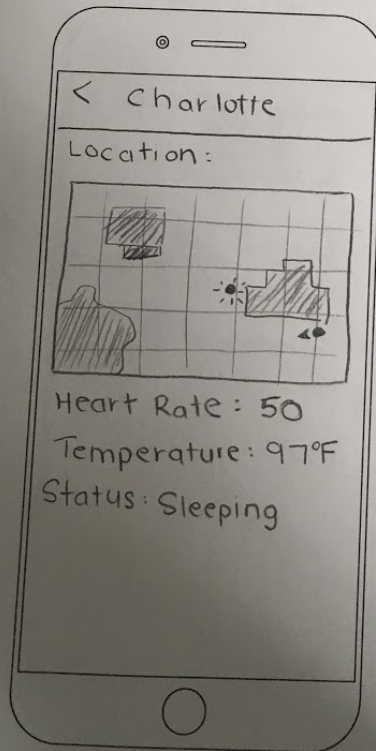 < Charlotte
Location:
Heart Rate: 50
Temperature: 97°F
Status: Sleeping